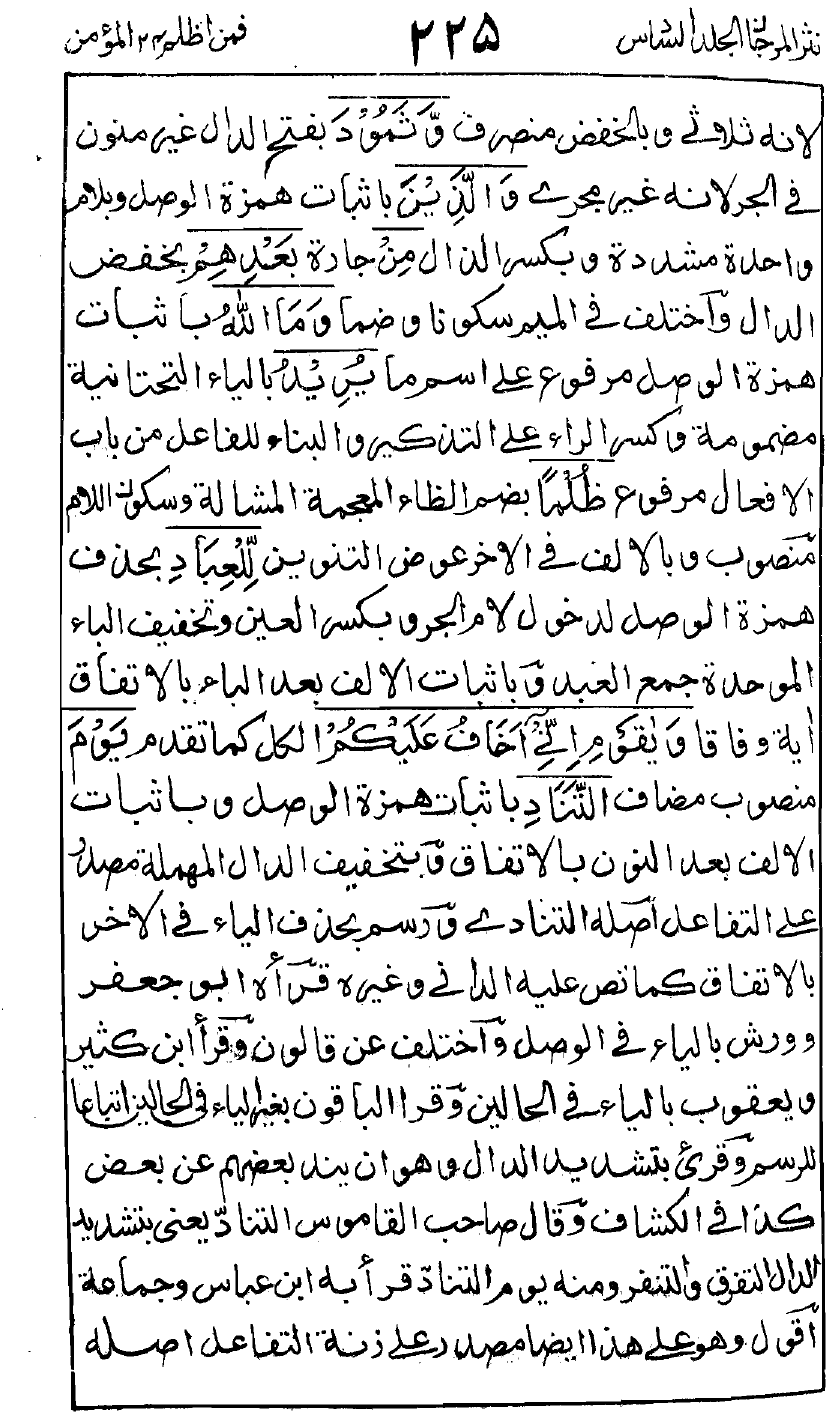 نثر المرجان الجلد السادس ۲۲۵ فمن اظلم ۲۴ المؤمن
لانه ثلاثي وبالخفض منصرف وَّثَمُوْدَ بفتح الدال غير منون
في الجر لانه غير مجرے وَالَّذِيْنَ باثبات همزة الوصل وبلام
واحدة مشددة وبكسر الذال مِنْ جارة بَعْدِهِمْ بخفض
الدال وٓاختلف في الميم سكونا وضما وَمَا اللّٰهُ باثبات
همزة الوصل مرفوع على اسم ما يُرِيْدُ بالياء التحتانية
مضمومة وٓكسر الراء على التذكير والبناء للفاعل من باب
الافعال مرفوع ظُلْمًا بضم الظاء المعجمة المشالة وسكون اللام
منصوب وبالالف في الاخر عوض التنوين لِّلْعِبَادِ بحذف
همزة الوصل لدخول لام الجر وبكسر العين وتخفيف الباء
الموحدة جمع العبد وٓباثبات الالف بعد الباء بالاتفاق
اٰية وفاقا وَيٰقَوْمِ اِنِّيْٓ اَخَافُ عَلَيْكُمْ الكل كما تقدم يَوْمَ
منصوب مضاف التَّنَادِ باثبات همزة الوصل وباثبات
الالف بعد النون بالاتفاق وٓبتخفيف الدال المهملة مصدر
على التفاعل اصله التنادے وٓرسم بحذف الياء في الاخر
بالاتفاق كما نص عليه الداني وغيره قرٓأه ابو جعفر
وورش بالياء في الوصل وٓاختلف عن قالون وٓقرأ ابن كثير
ويعقوب بالياء في الحالين وٓقرا الباقون بغير الياء في الحالين اتباعا
للرسم وٓقرئ بتشديد الدال وهو ان يند بعضهم عن بعض
كذا في الكشاف وٓقال صاحب القاموس التنادّ يعنى بتشديد
الدال التفرق والتنفر ومنه يوم التنادّ قرأ به ابن عباس وجماعة
آقول وهو على هذا ايضا مصدر على زنة التفاعل اصله